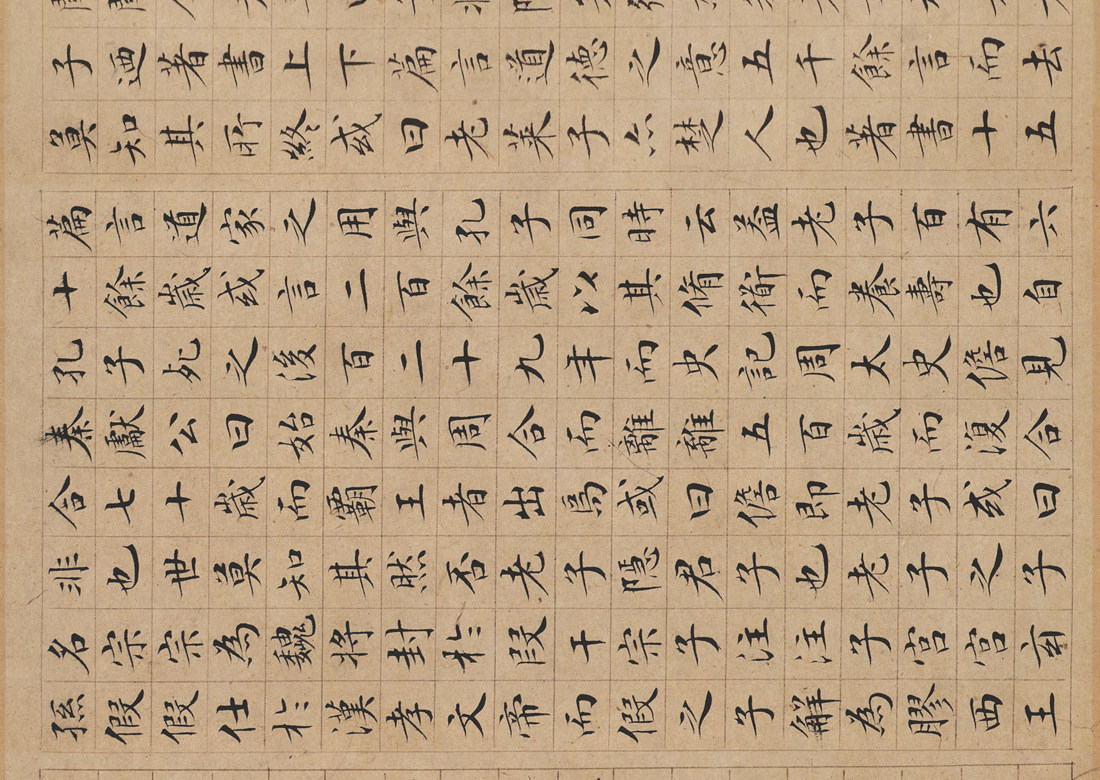 子迺著書上下篇言道德之意五千餘言而去
莫知其所終或曰老萊子亦楚人也著書十五
篇言道家之用與孔子同時云蓋老子百有六
十餘歲或言二百餘歲以其脩衜而養壽也自
孔子死之後百二十九年而史記周太史儋見
秦獻公曰始秦與周合而離離五百歲而復合
合七十歲而霸王者出焉或曰儋即老子或曰
非也世莫知其然否老子隱君子也老子之子
名宗宗為魏將封於段干宗子注注子宮宮玄
孫假假仕於漢孝文帝而假之子解為膠西王